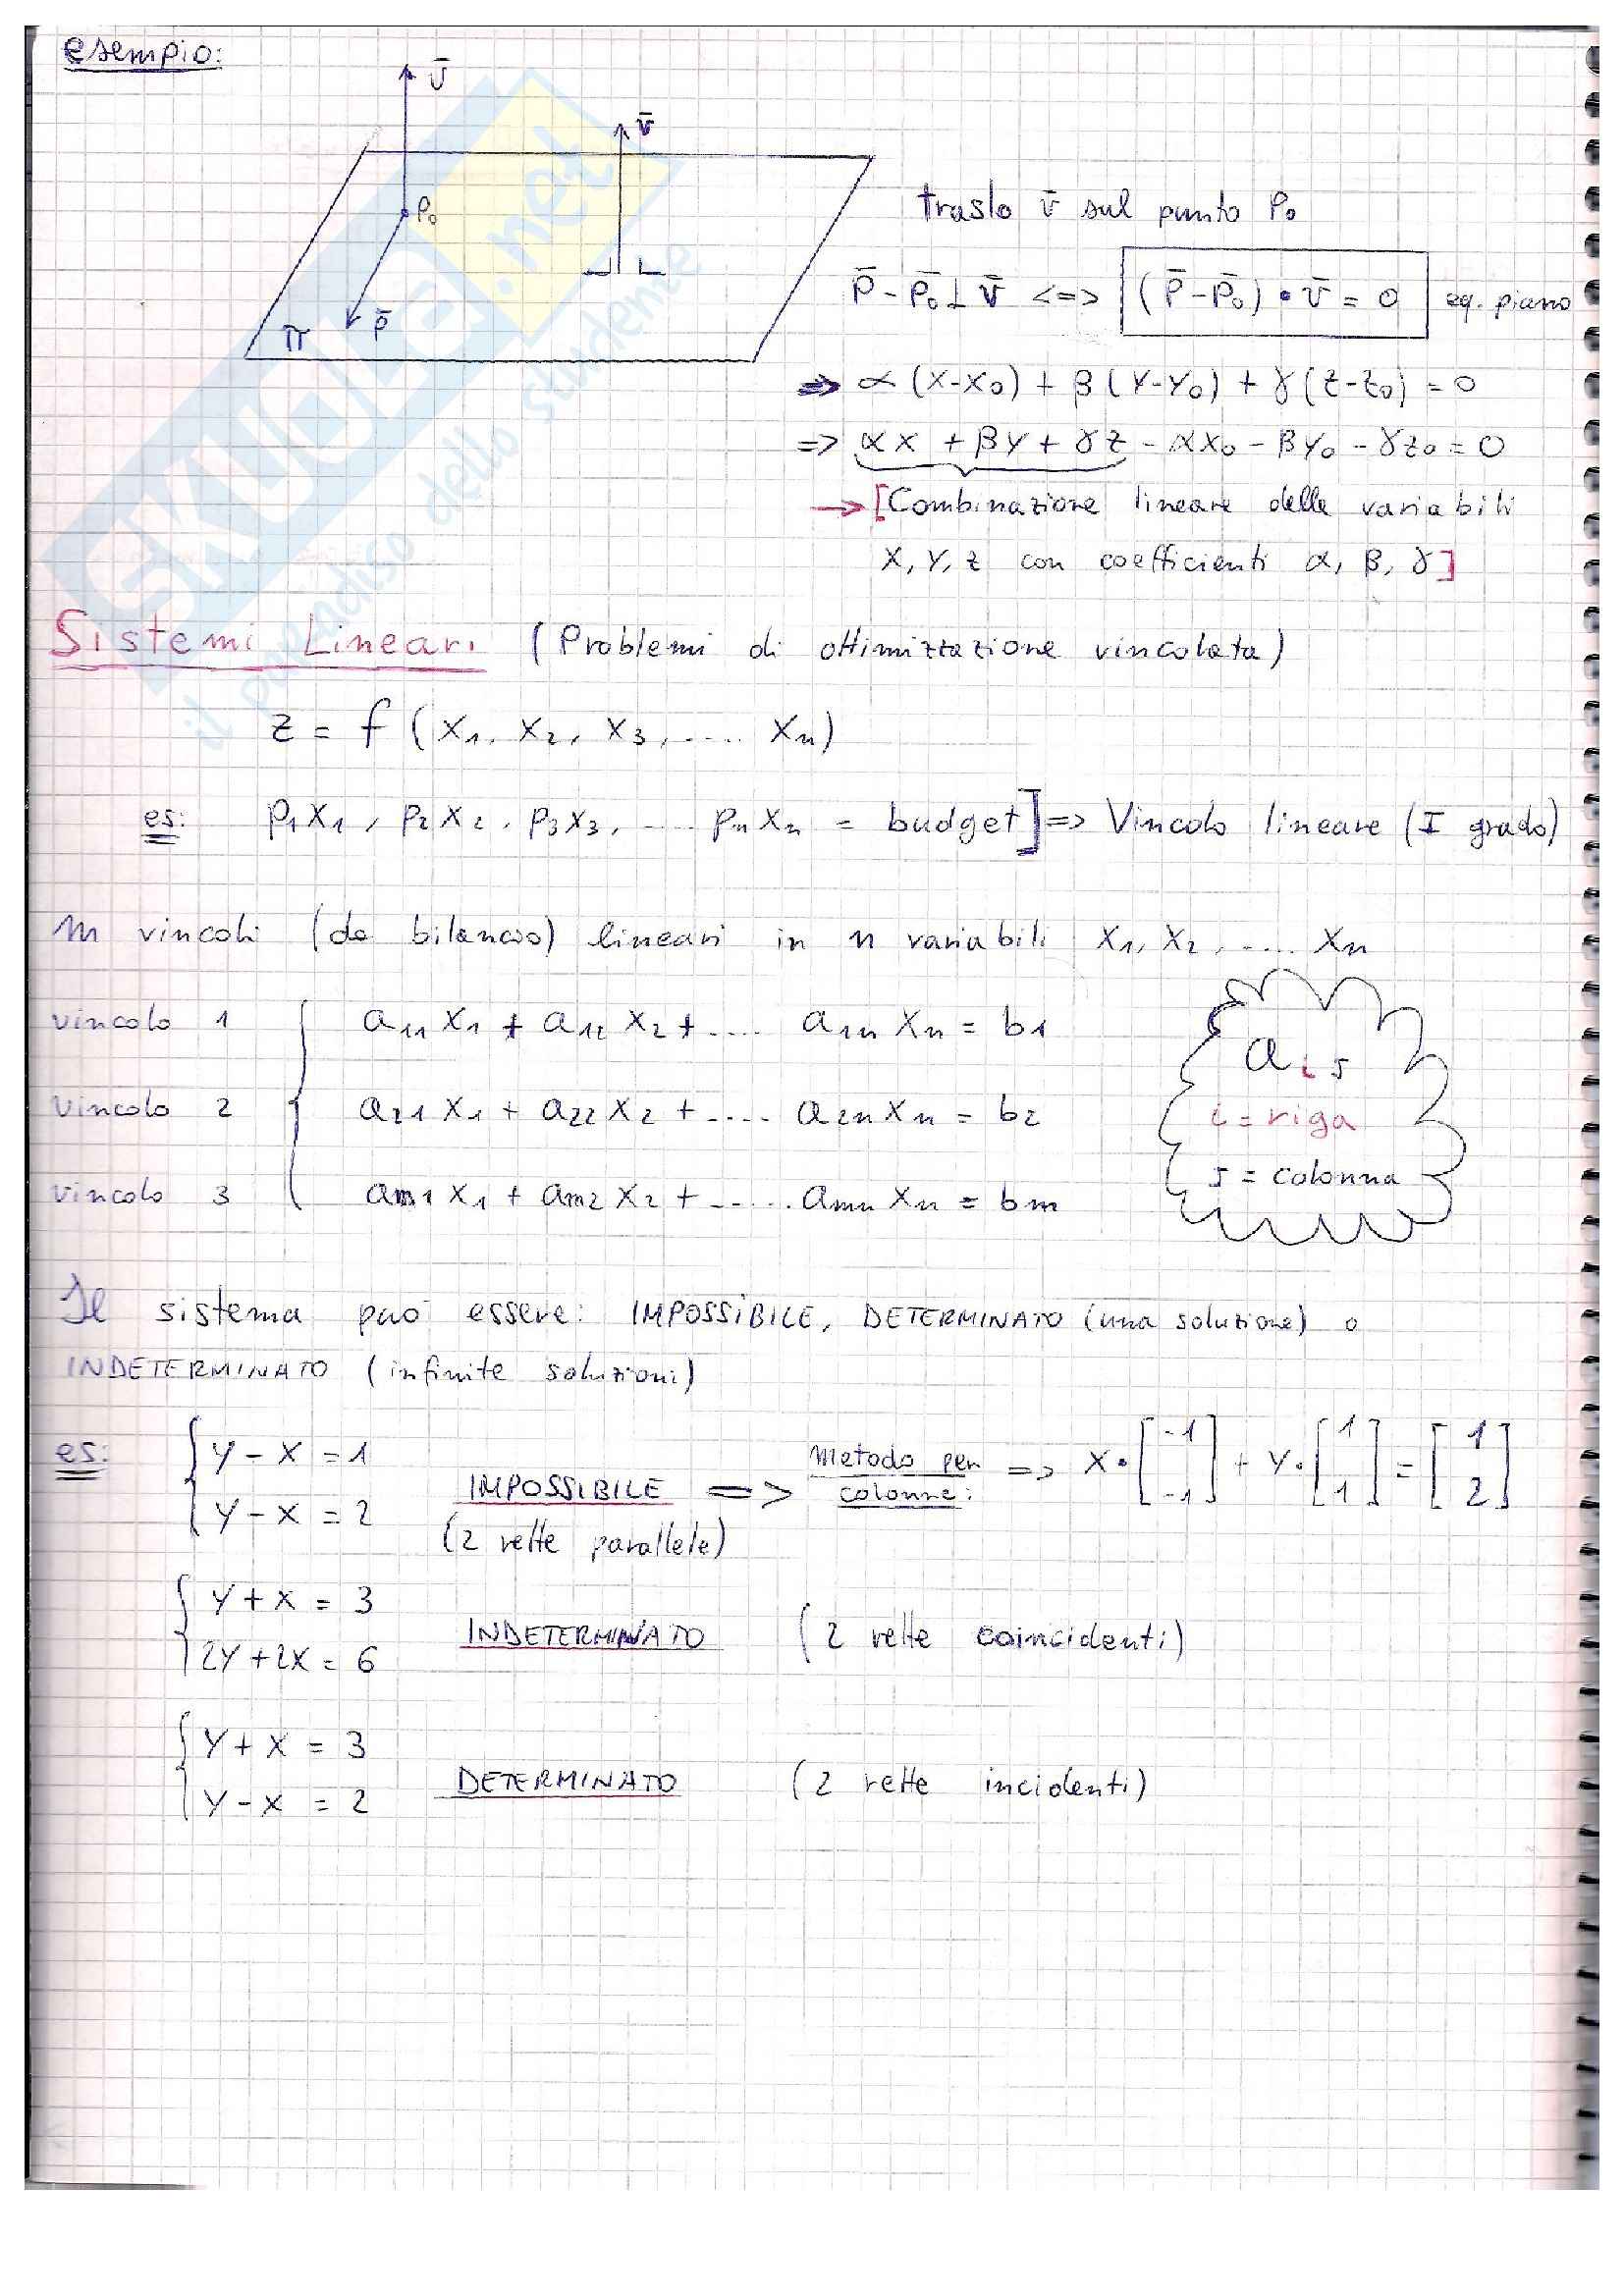 esempio:
v̄
v̄
P₀
p̄
π
traslo v̄ sul punto P₀
P̄ - P̄₀ ⊥ v̄ <=> (P̄ - P̄₀) • v̄ = 0 eq. piano
=> α (x-x₀) + β (y-y₀) + γ (z-z₀) = 0
=> αx + βy + γz - αx₀ - βy₀ - γz₀ = 0
→ [Combinazione lineare delle variabili
x, y, z con coefficienti α, β, γ]
Sistemi Lineari (Problemi di ottimizzazione vincolata)
z = f (x₁, x₂, x₃, .... xₙ)
es: p₁x₁, p₂x₂, p₃x₃, .... pₙxₙ = budget] => Vincolo lineare (I grado)
m vincoli (do bilancio) lineari in n variabili x₁, x₂, .... xₙ
vincolo 1 a₁₁x₁ + a₁₂x₂ + .... a₁ₙxₙ = b₁
vincolo 2 a₂₁x₁ + a₂₂x₂ + .... a₂ₙxₙ = b₂
vincolo 3 aₘ₁x₁ + aₘ₂x₂ + ..... aₘₙxₙ = bₘ
aᵢⱼ
i = riga
j = colonna
Il sistema può essere: IMPOSSIBILE, DETERMINATO (una soluzione) o
INDETERMINATO (infinite soluzioni)
es: { y - x = 1
y - x = 2
IMPOSSIBILE =>
(2 rette parallele)
Metodo per colonne: => x • [-1 -1] + y • [1 1] = [1 2]
{ y + x = 3
2y + 2x = 6
INDETERMINATO (2 rette coincidenti)
{ y + x = 3
y - x = 2
DETERMINATO (2 rette incidenti)
SKUOLA.net
il paradiso dello studente